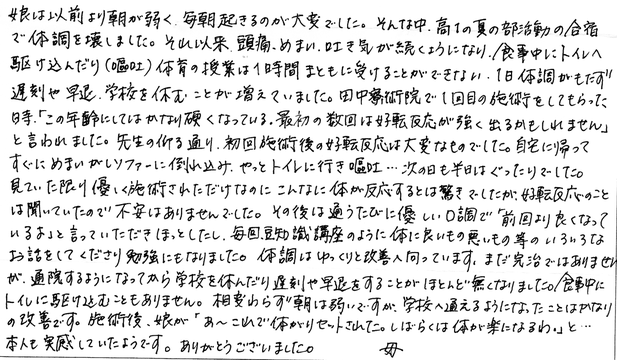 娘は以前より朝が弱く、毎朝起きるのが大変でした。そんな中、高1の夏の部活動の合宿
で体調を壊しました。それ以来、頭痛、めまい、吐き気が続くようになり、食事中にトイレへ
駆け込んだり(嘔吐)体育の授業は1時間まともに受けることができない、1日体調がもたず
遅刻や早退、学校を休むことが増えていました。田中療術院で1回目の施術をしてもらった
時、「この年齢にしてはかなり硬くなっている。最初の数回は好転反応が強く出るかもしれません」
と言われました。先生の仰る通り、初回施術後の好転反応は大変なものでした。自宅に帰って
すぐにめまいがしソファーに倒れ込み、やっとトイレに行き嘔吐…次の日も半日はぐったりでした。
見ていた限り優しく施術されただけなのに こんなに体が反応するとは驚きでしたが、好転反応のこと
は聞いていたので不安はありませんでした。その後は通うたびに優しい口調で「前回より良くなって
いるよ」と言っていただきほっとしたし、毎回豆知識講座のように体に良いもの悪いもの等のいろいろな
お話をしてくださり勉強にもなりました。体調はゆっくりと改善へ向っています。まだ完治ではありません
が、通院するようになってから学校を休んだり遅刻や早退をすることがほとんど無くなりました。食事中に
トイレに駆け込むこともありません。相変わらず朝は弱いですが、学校へ通えるようになったことはかなり
の改善です。施術後、娘が「あ〜これで体がリセットされた。しばらくは体が楽になるわ。」と…
本人も実感していたようです。ありがとうございました。 母